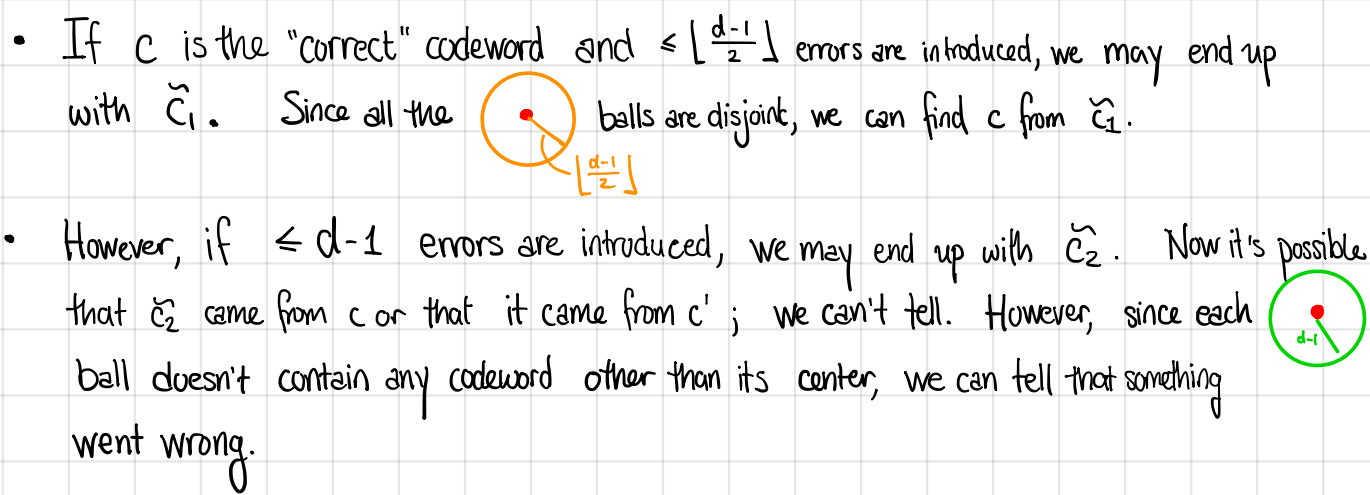 • If c is the "correct" codeword and ≤ ⌊(d-1)/2⌋ errors are introduced, we may end up
with c̃₁. Since all the balls are disjoint, we can find c from c̃₁.
⌊(d-1)/2⌋
• However, if ≤ d-1 errors are introduced, we may end up with c̃₂. Now it's possible
that c̃₂ came from c or that it came from c'; we can't tell. However, since each
d-1
ball doesn't contain any codeword other than its center, we can tell that something
went wrong.